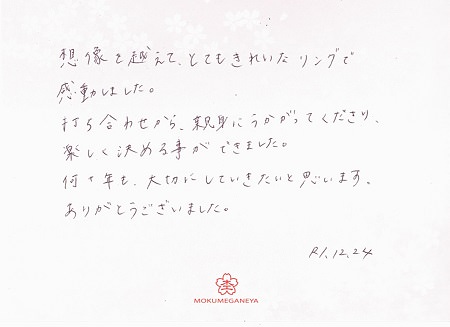 想像を越えて、とてもきれいなリングで
感動しました。
打ち合わせから、親身にうかがってくださり、
楽しく決める事ができました。
何十年も、大切にしていきたいと思います。
ありがとうございました。
R1.12.24
MOKUMEGANEYA